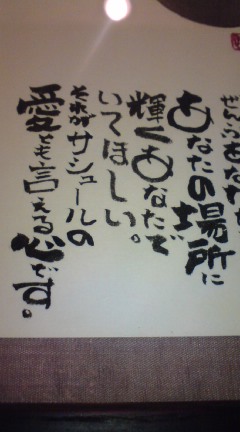 ぜんぶあなた
あなたの場所に
輝くあなたで
いてほしい。
それがサシュールの
愛とも言える心です。